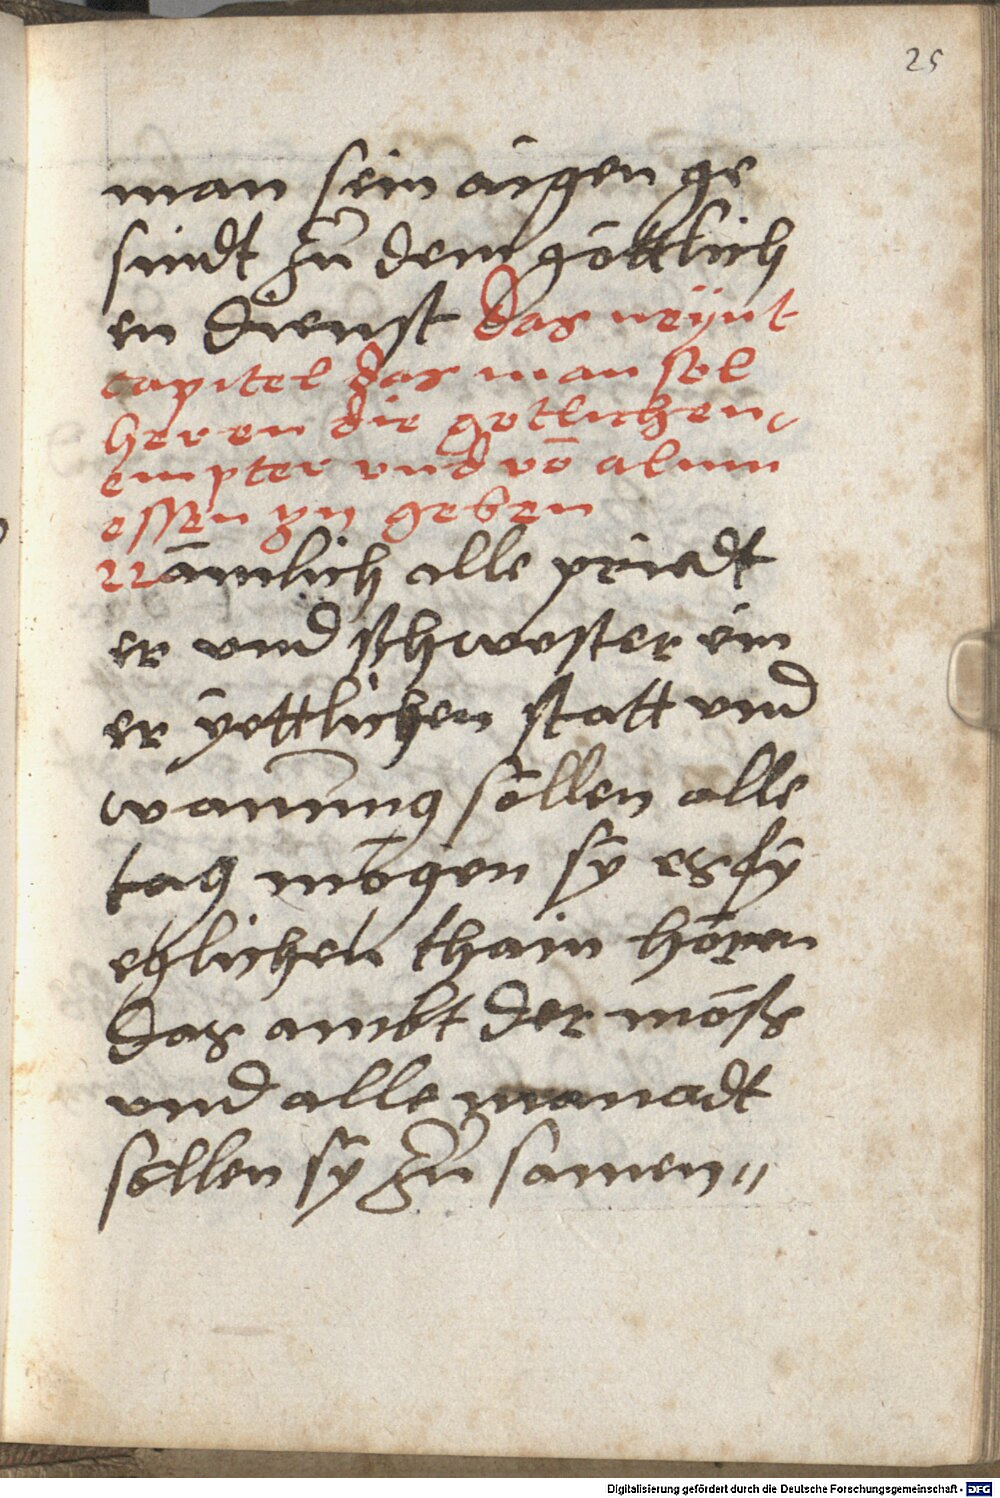 25
man sein aigen ge
sindt zů dem göttlich
en dienst das neÿnt
capittel das man sol
heren die gotlichen
empter vnd võ almu
essen zu geben
Nämlich alle prüedt
er vnd schwester ein
er ÿettlichen statt vnd
wanũng söllen alle
tag mögen sÿ es fÿ
eglichen thain hören
das ambt der möss
vnd alle manadt
söllen sÿ zů samen
Digitalisierung gefördert durch die Deutsche Forschungsgemeinschaft - DFG